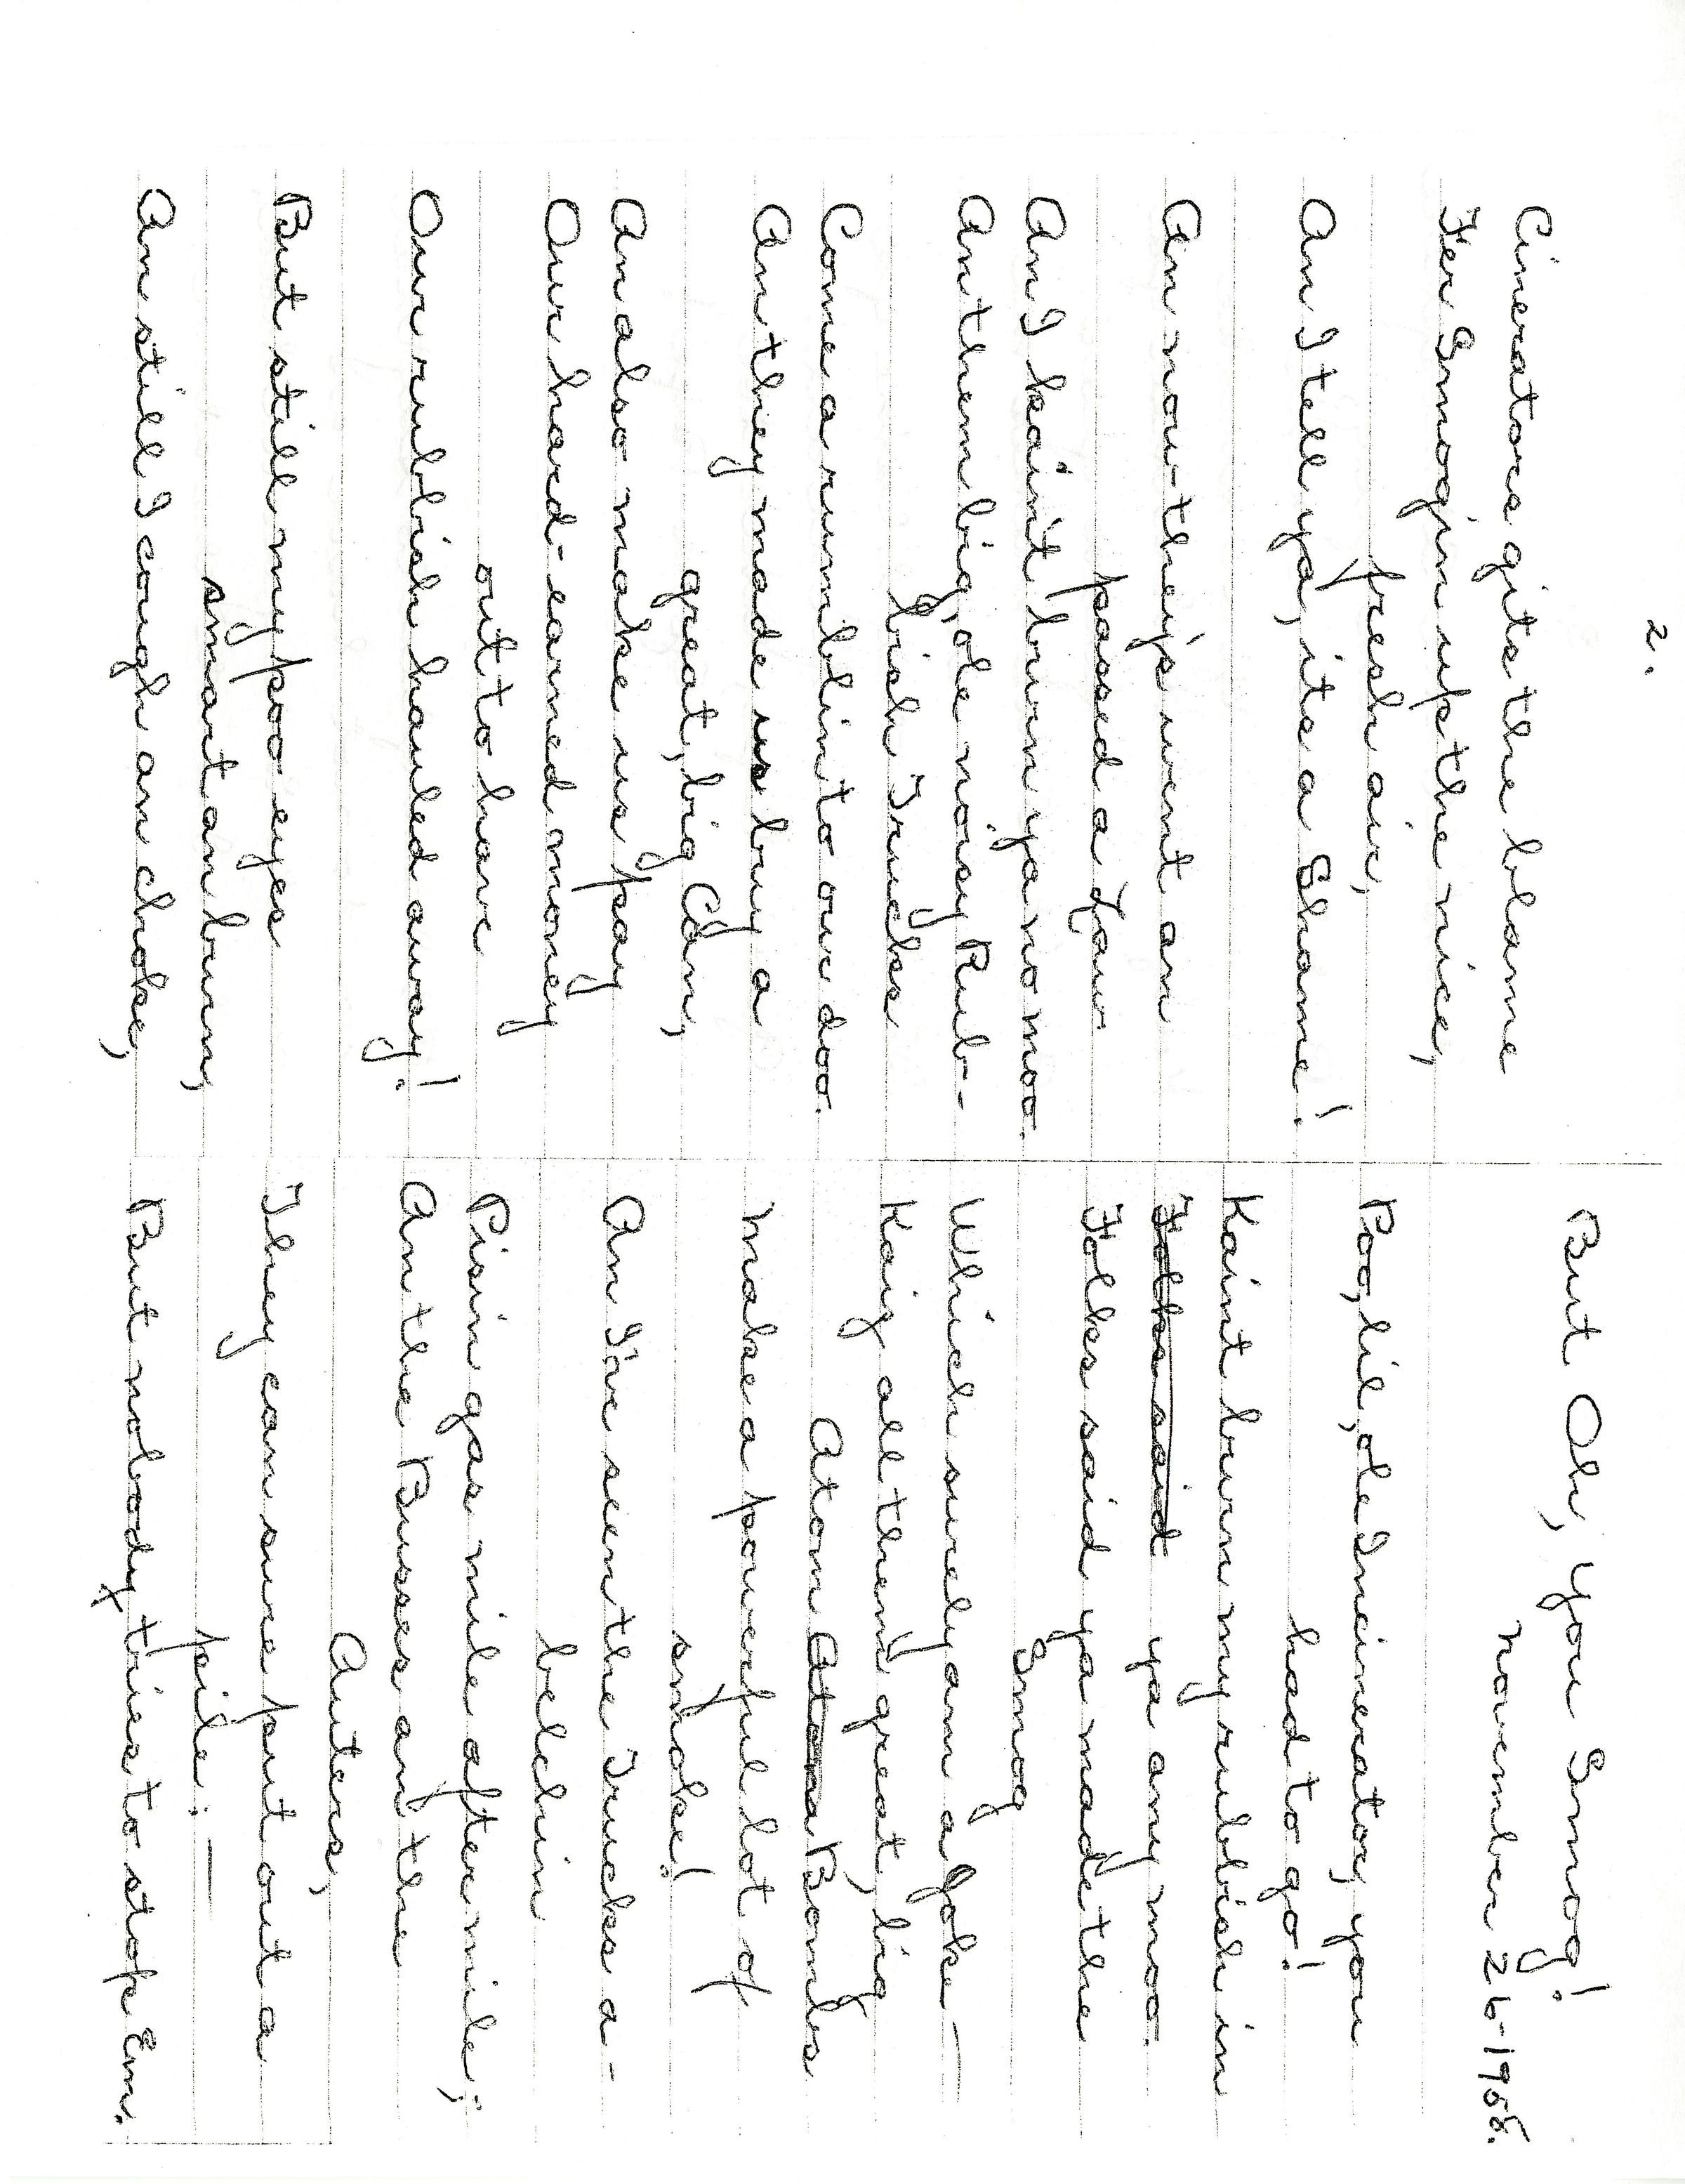 But Oh, You Smog!
November 26-1958.
Poo, lil, ole Incinerator, you
had to go!
Kain't burn my rubbish in
Folks said ya any moo.
Folks said ya made the
Smog
Which surely am a Joke —
Kaiz all them great, big
Atom Atoma Bombs
Make a powerful lot of
smoke!
An I've seen the Trucks a-
belchin
Pisin gas mile after mile;
An the Busses an the
Auters,
They can sure put out a
pile: —
But nobody tries to stop Em.
2.
Cinerators gits the blame
Fer Smogin up the nice,
fresh air,
An I tell ya, its a Shame!
An now-they's went an
passed a Law
An I kain't burn ya no moo.
An them big, ole noisy Rub-
bish Trucks
Come a rumblin to our doo.
An they made us buy a
great, big Can,
An also make us pay
Our hard-earned money
out to have
Our rubbish hauled away!
But still my poo eyes
smart an burn,
An still I cough an choke,